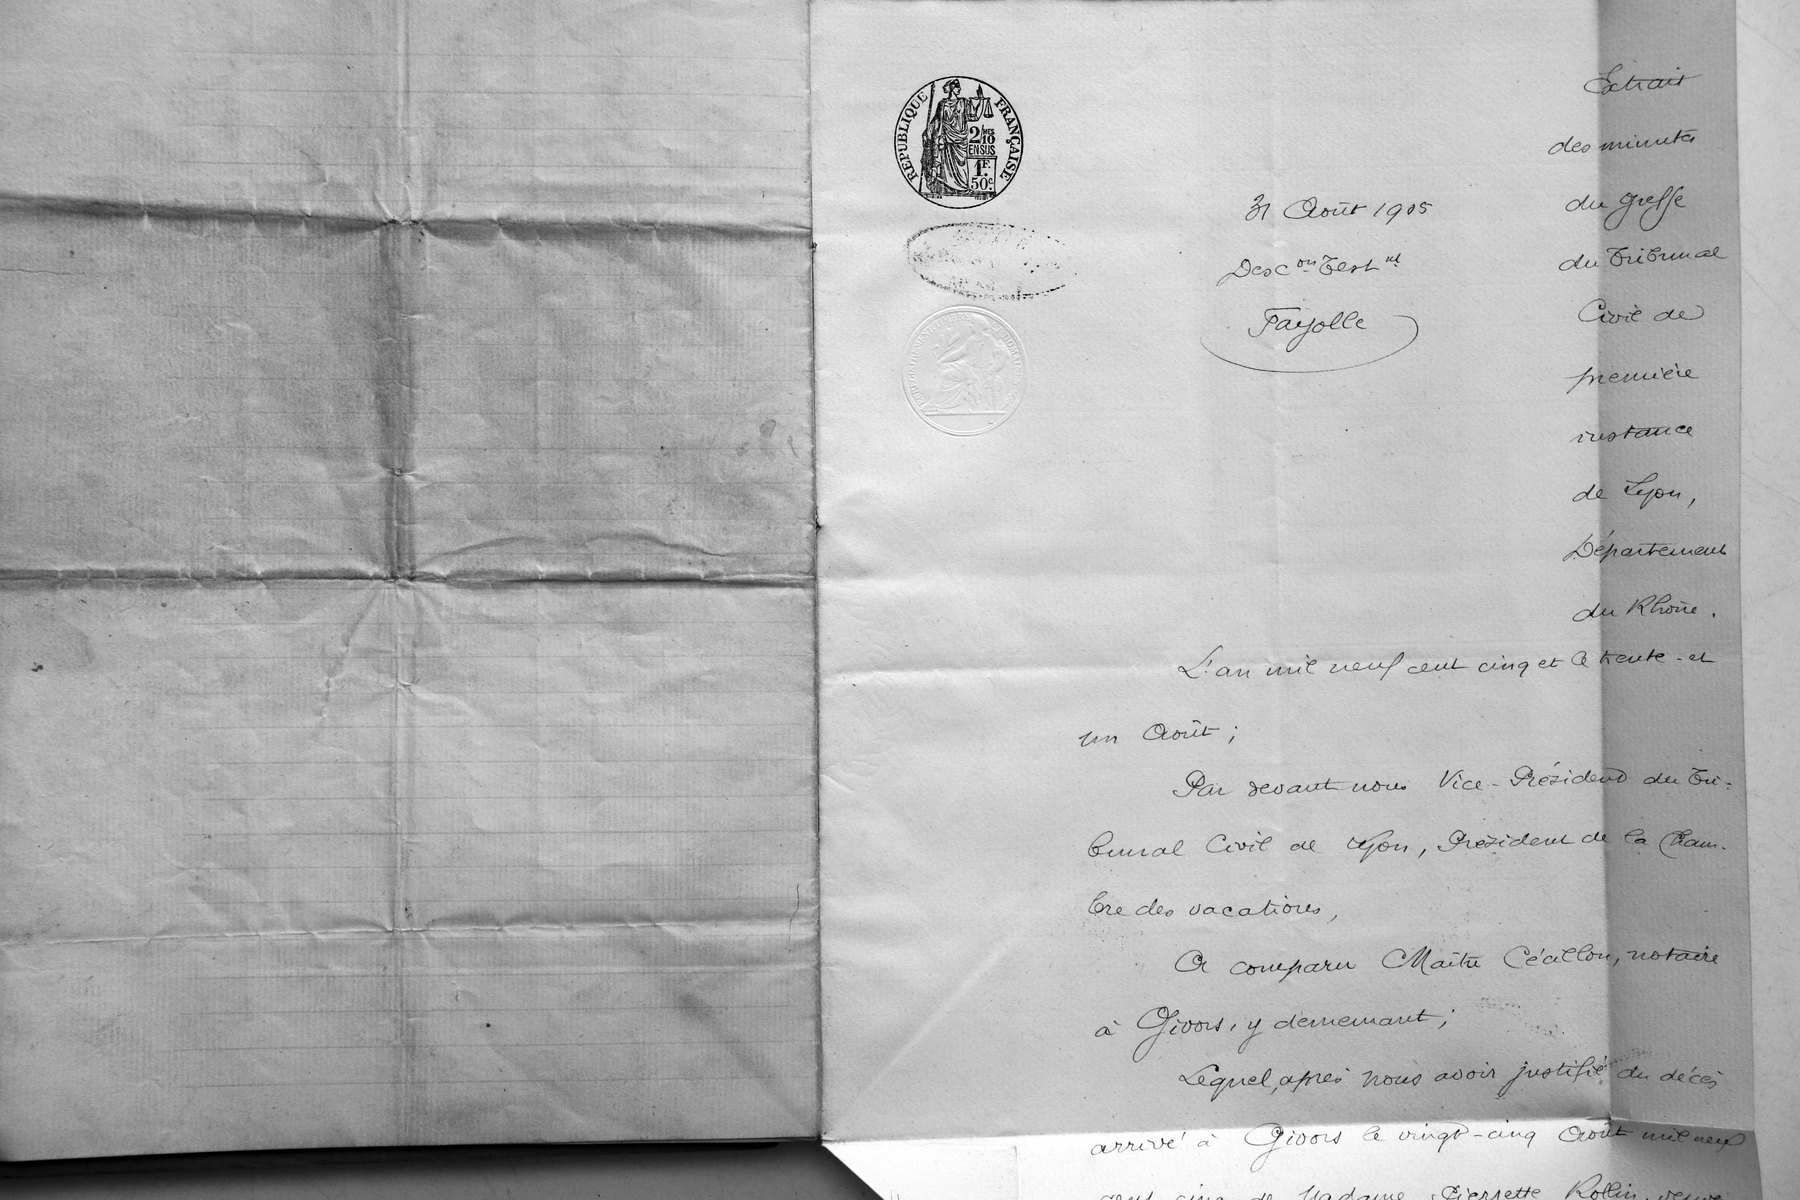 RÉPUBLIQUE FRANÇAISE
2/MES 10
EN SUS
1 F.
50 c.
31 Août 1905
Des con Test nt
Fayolle
Extrait
des minutes
du greffe
du Tribunal
Civil de
première
instance
de Lyon,
Département
du Rhône.
L'an mil neuf cent cinq et le trente-et
un Août ;
Par devant nous Vice-Président du Tri-
bunal Civil de Lyon, Président de la Cham-
bre des vacations,
A comparu Maître Céallou, notaire
à Givors, y demeurant ;
Lequel, après nous avoir justifié du décès
arrivé à Givors le vingt-cinq Août mil neuf
cent cinq de Madame Pierrette Rollin, veuve